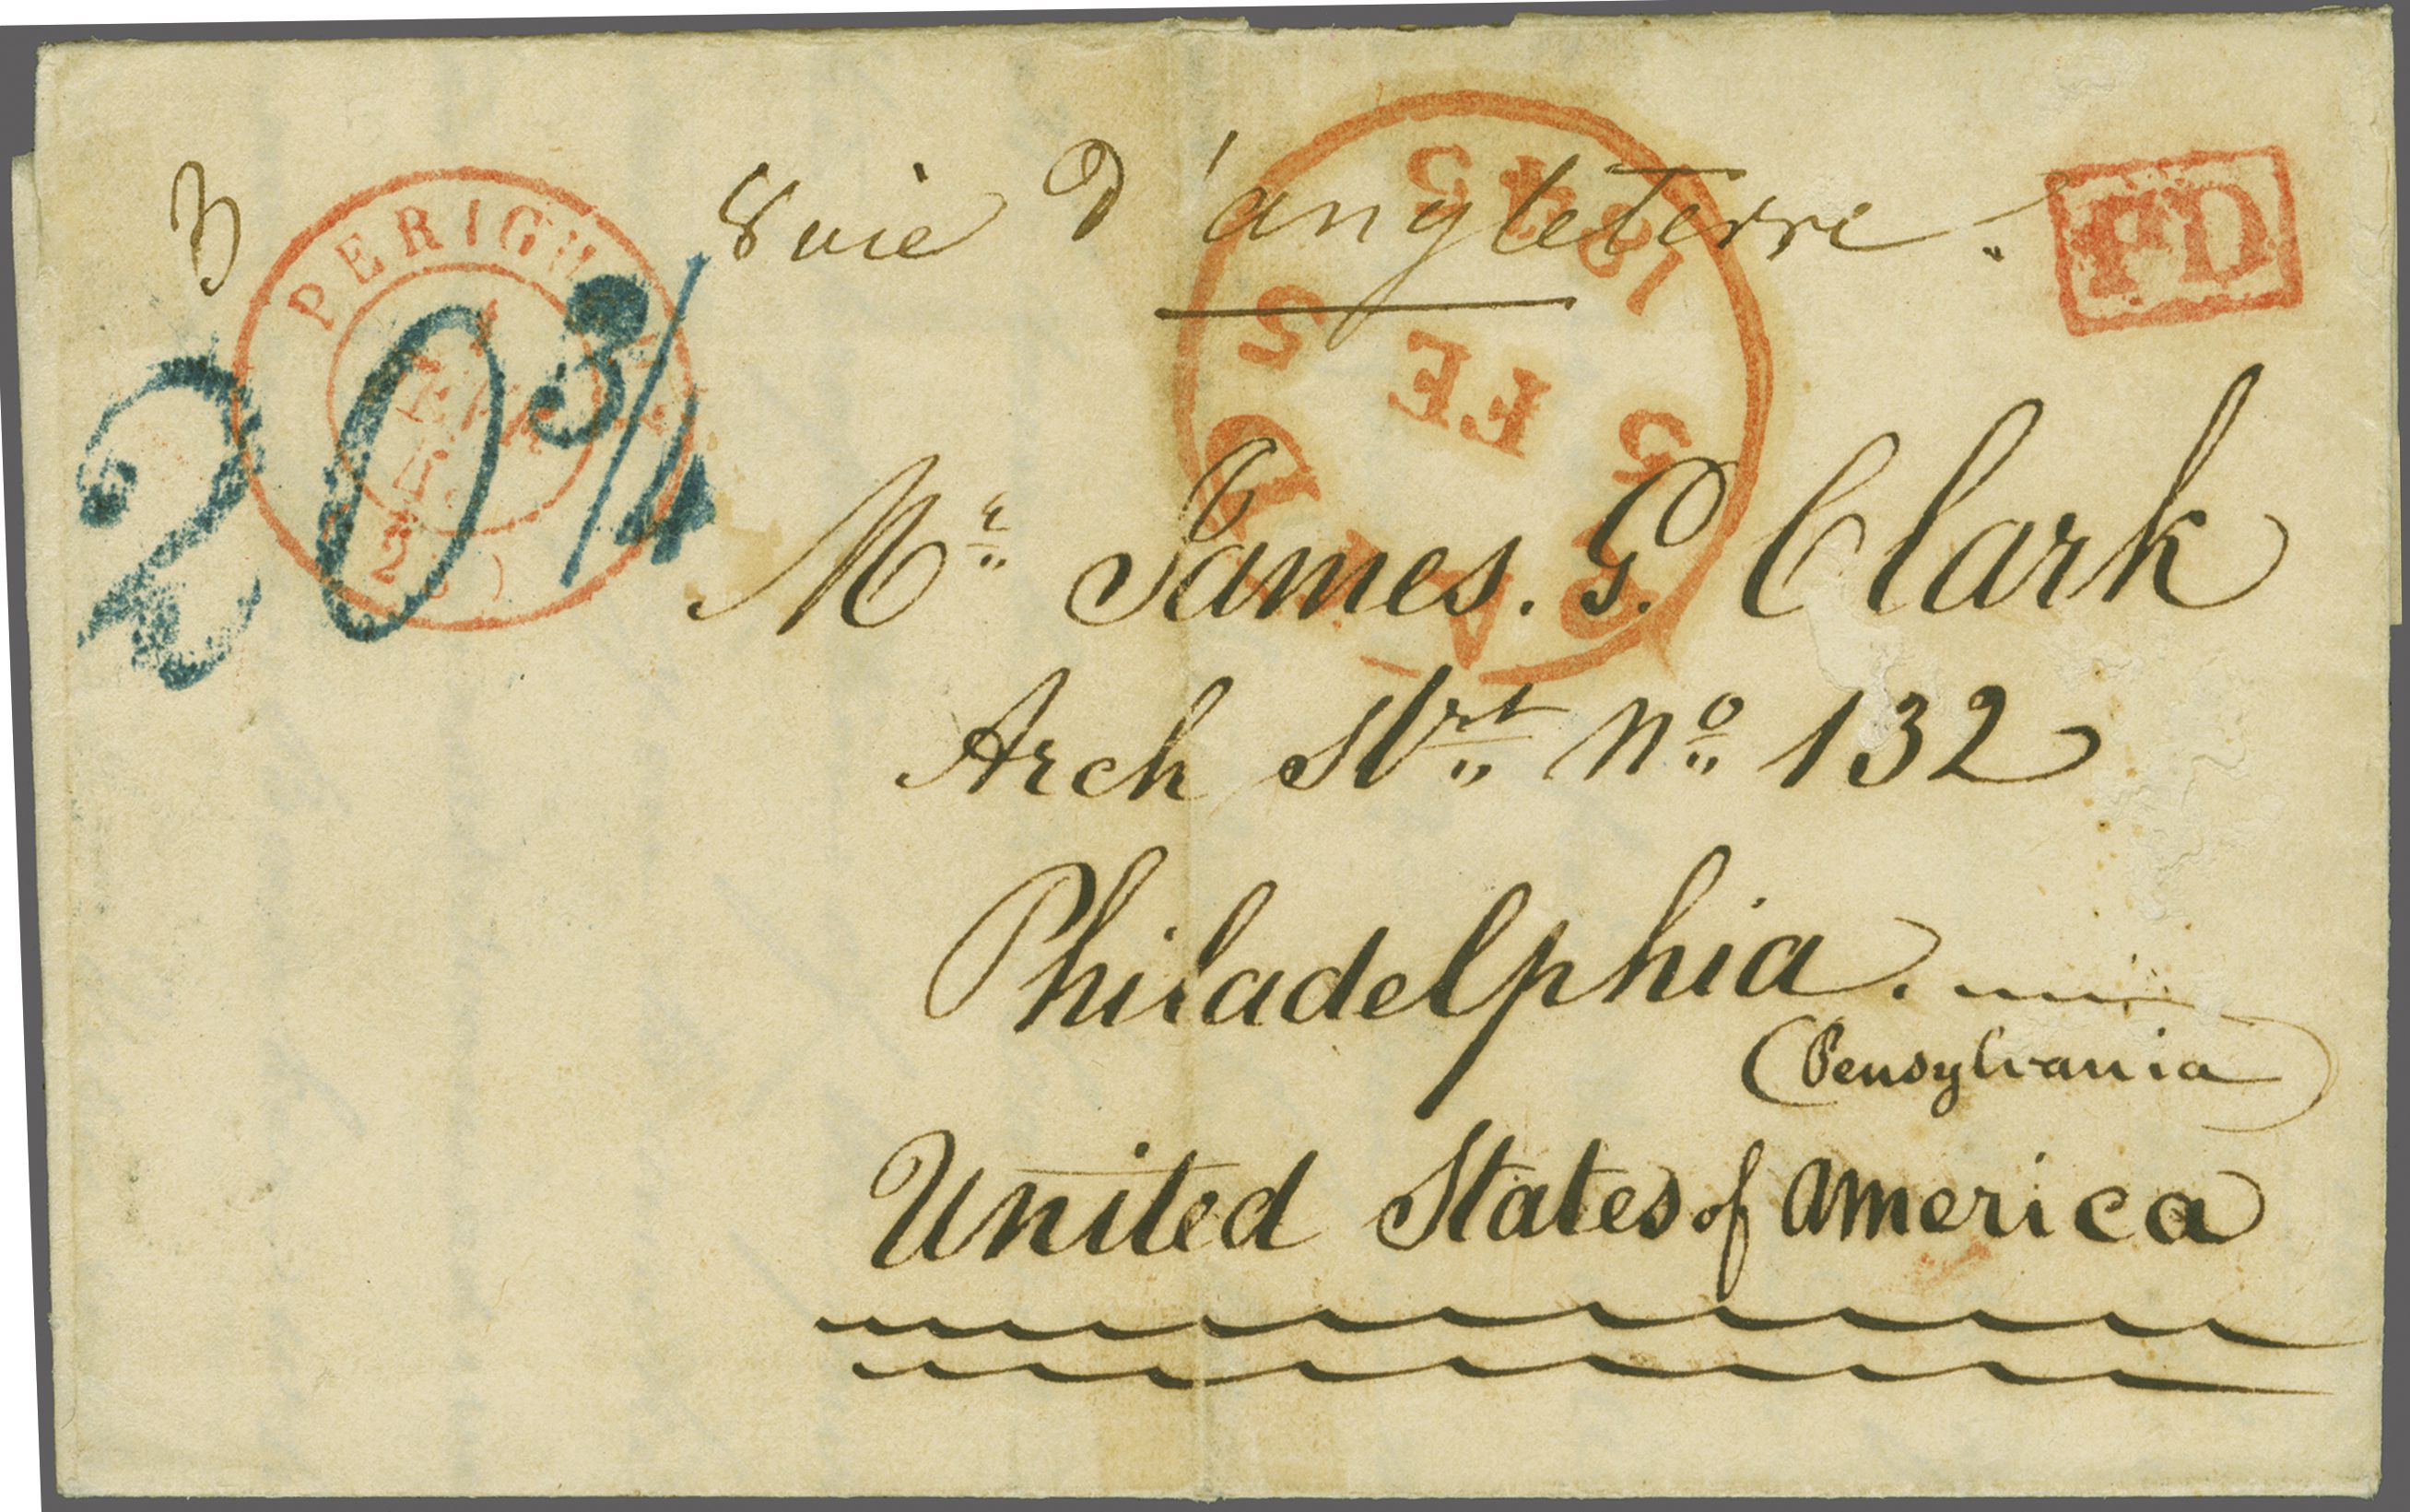 voie d'angleterre.
PD
PERIGU
20 3/4
PAID
3 FE 5
1843
Mr James. G. Clark
Arch Strt No 132
Philadelphia.
(Pensylvania)
United States of america